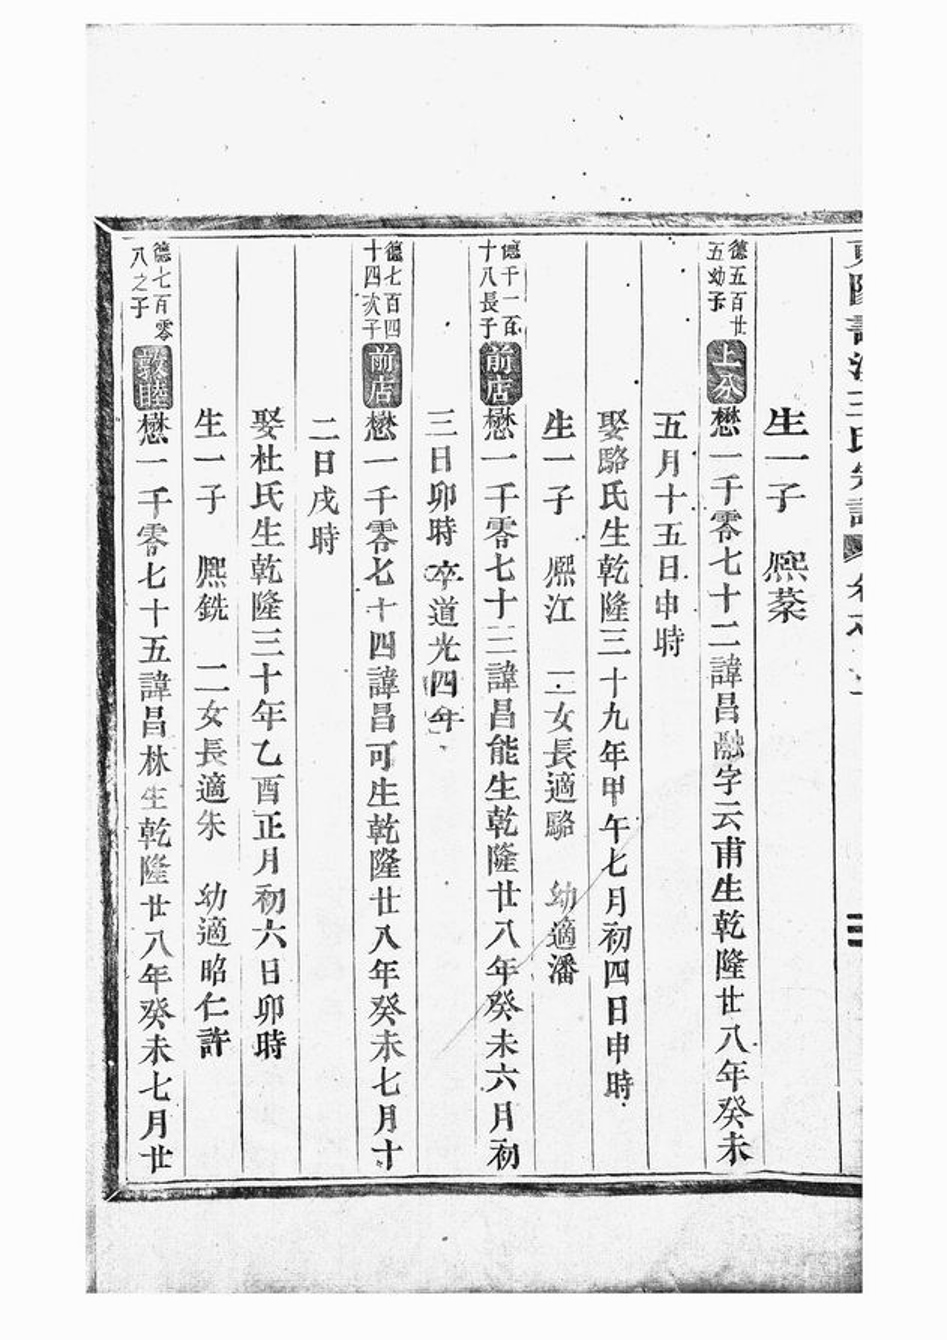 生一子 熈棻
德五百廿五幼子 上分 懋一千零七十二諱昌融字云甫生乾隆廿八年癸未
五月十五日申時
娶駱氏生乾隆三十九年甲午七月初四日申時
生一子 熈江 二女長適駱 幼適潘
德千一百十八長子 前店 懋一千零七十三諱昌能生乾隆廿八年癸未六月初
三日卯時卒道光四年
德七百四十四次子 前店 懋一千零七十四諱昌可生乾隆廿八年癸未七月十
二日戌時
娶杜氏生乾隆三十年乙酉正月初六日卯時
生一子 熈銑 二女長適朱 幼適昭仁許
德七百零八之子 敦睦 懋一千零七十五諱昌林生乾隆廿八年癸未七月廿